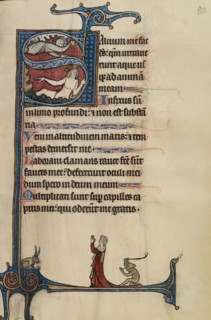 aluum me fac
ds: qm intraue
runt aque us
q; ad animam
meam
Infixus sū
in limo profundi: et non est substā
tia
Veni in altitudinem maris: et tem
pestas demersit me
Laboraui clamans rauce fcē sūt
fauces mee: defecerunt oculi mei
dum spero in deum meum
Multiplicati sunt sup capillos ca
pitis mei: qui oderūt me gratis.